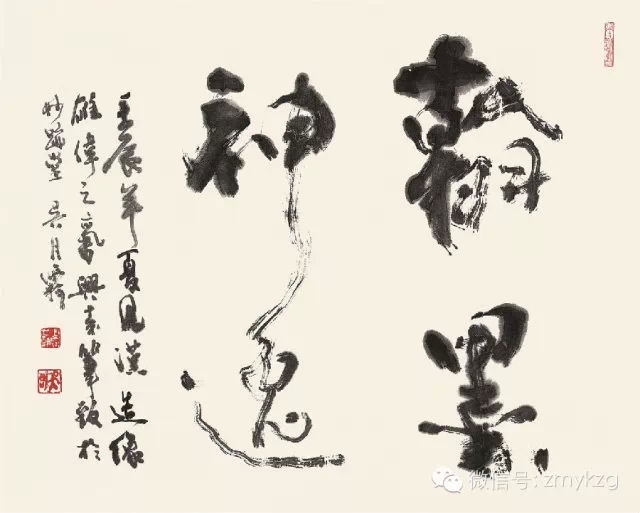 翰墨
神逸
壬辰年夏見漢造像
雄偉之氣興來筆致於
妙跡堂 吳月霖
微信号: zmykzg